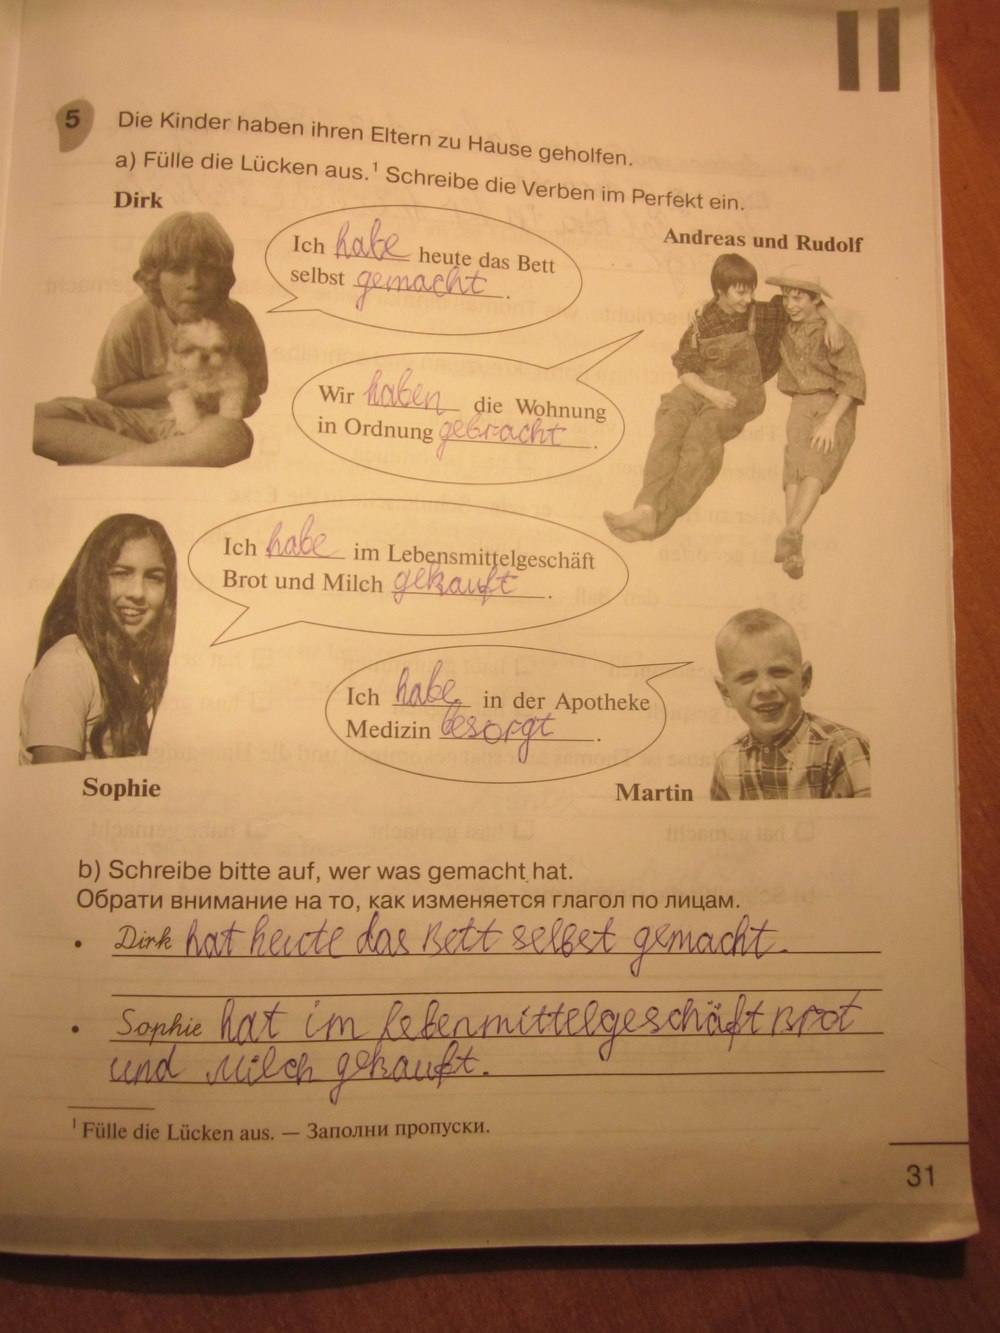 II
5 Die Kinder haben ihren Eltern zu Hause geholfen.
a) Fülle die Lücken aus.¹ Schreibe die Verben im Perfekt ein.
Dirk
Ich habe heute das Bett
selbst gemacht.
Andreas und Rudolf
Wir haben die Wohnung
in Ordnung gebracht.
Ich habe im Lebensmittelgeschäft
Brot und Milch gekauft.
Ich habe in der Apotheke
Medizin besorgt.
Sophie
Martin
b) Schreibe bitte auf, wer was gemacht hat.
Обрати внимание на то, как изменяется глагол по лицам.
• Dirk hat heute das Bett selbst gemacht.
• Sophie hat im Lebenmittelgeschäft Brot
und Milch gekauft.
¹ Fülle die Lücken aus. — Заполни пропуски.
31